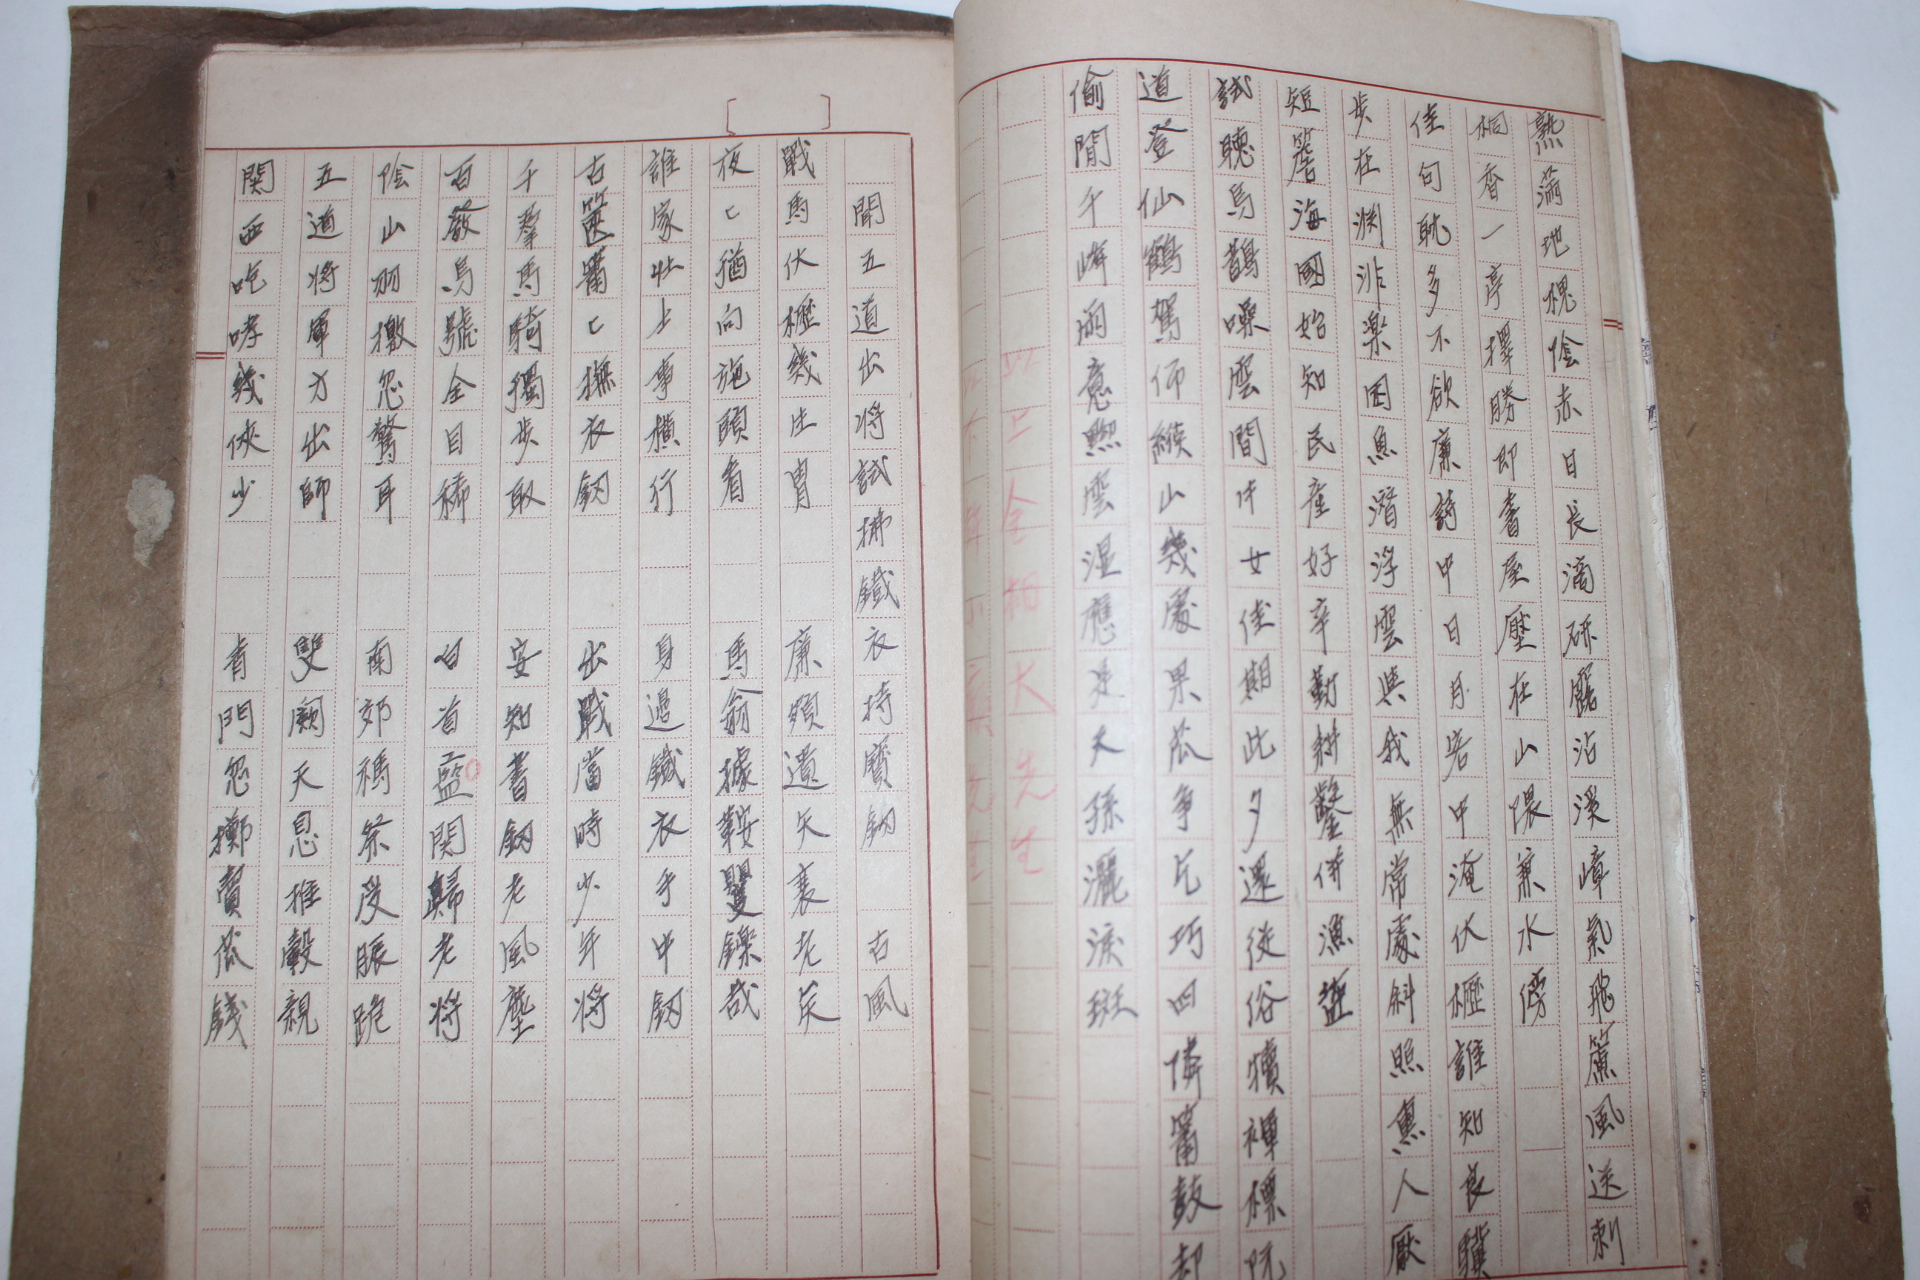 熟滿地槐陰赤日長滴硃露沾溪嶂氣飛簾風送刺
桐香一亭擇勝即書屋壓在山隈兼水傍
佳句耽多不欲廉詩中日月岩中淹伏櫪誰知良驥
步在淵沚樂困魚潛浮雲與我無常處斜照熏人厭
短簷海國始知民產好辛勤耕鑿侍漁
試聽馬鵲噪雲間牛女佳期此夕還從俗犢褌標阮
道登仙鶴駕何緱山幾處果瓜爭乞巧四隣簫鼓却
偷閒千峰雨意黑雲濕應是天孫灑淚斑
以上 全柏大先生
聞五道出將試拂鐵衣持寶劒 古風
戰馬伏櫪幾出胃 廉頗遺矢衰老矣
夜〻猶向旄頭看 馬翁據鞍矍鑠哉
誰家壯士事橫行 身邊鐵衣手中劒
古篋蕭〻撫衣劒 出戰當時少年將
千羣馬騎獨步取 安知書劒老風塵
百發馬號全目稀 白首藍関歸老將
陰山羽檄忽驚耳 南郊禡祭受脤跪
五道將軍方出師 雙闕天恩推轂親
関西咆哮幾俠少 靑門忽擲賣瓜錢